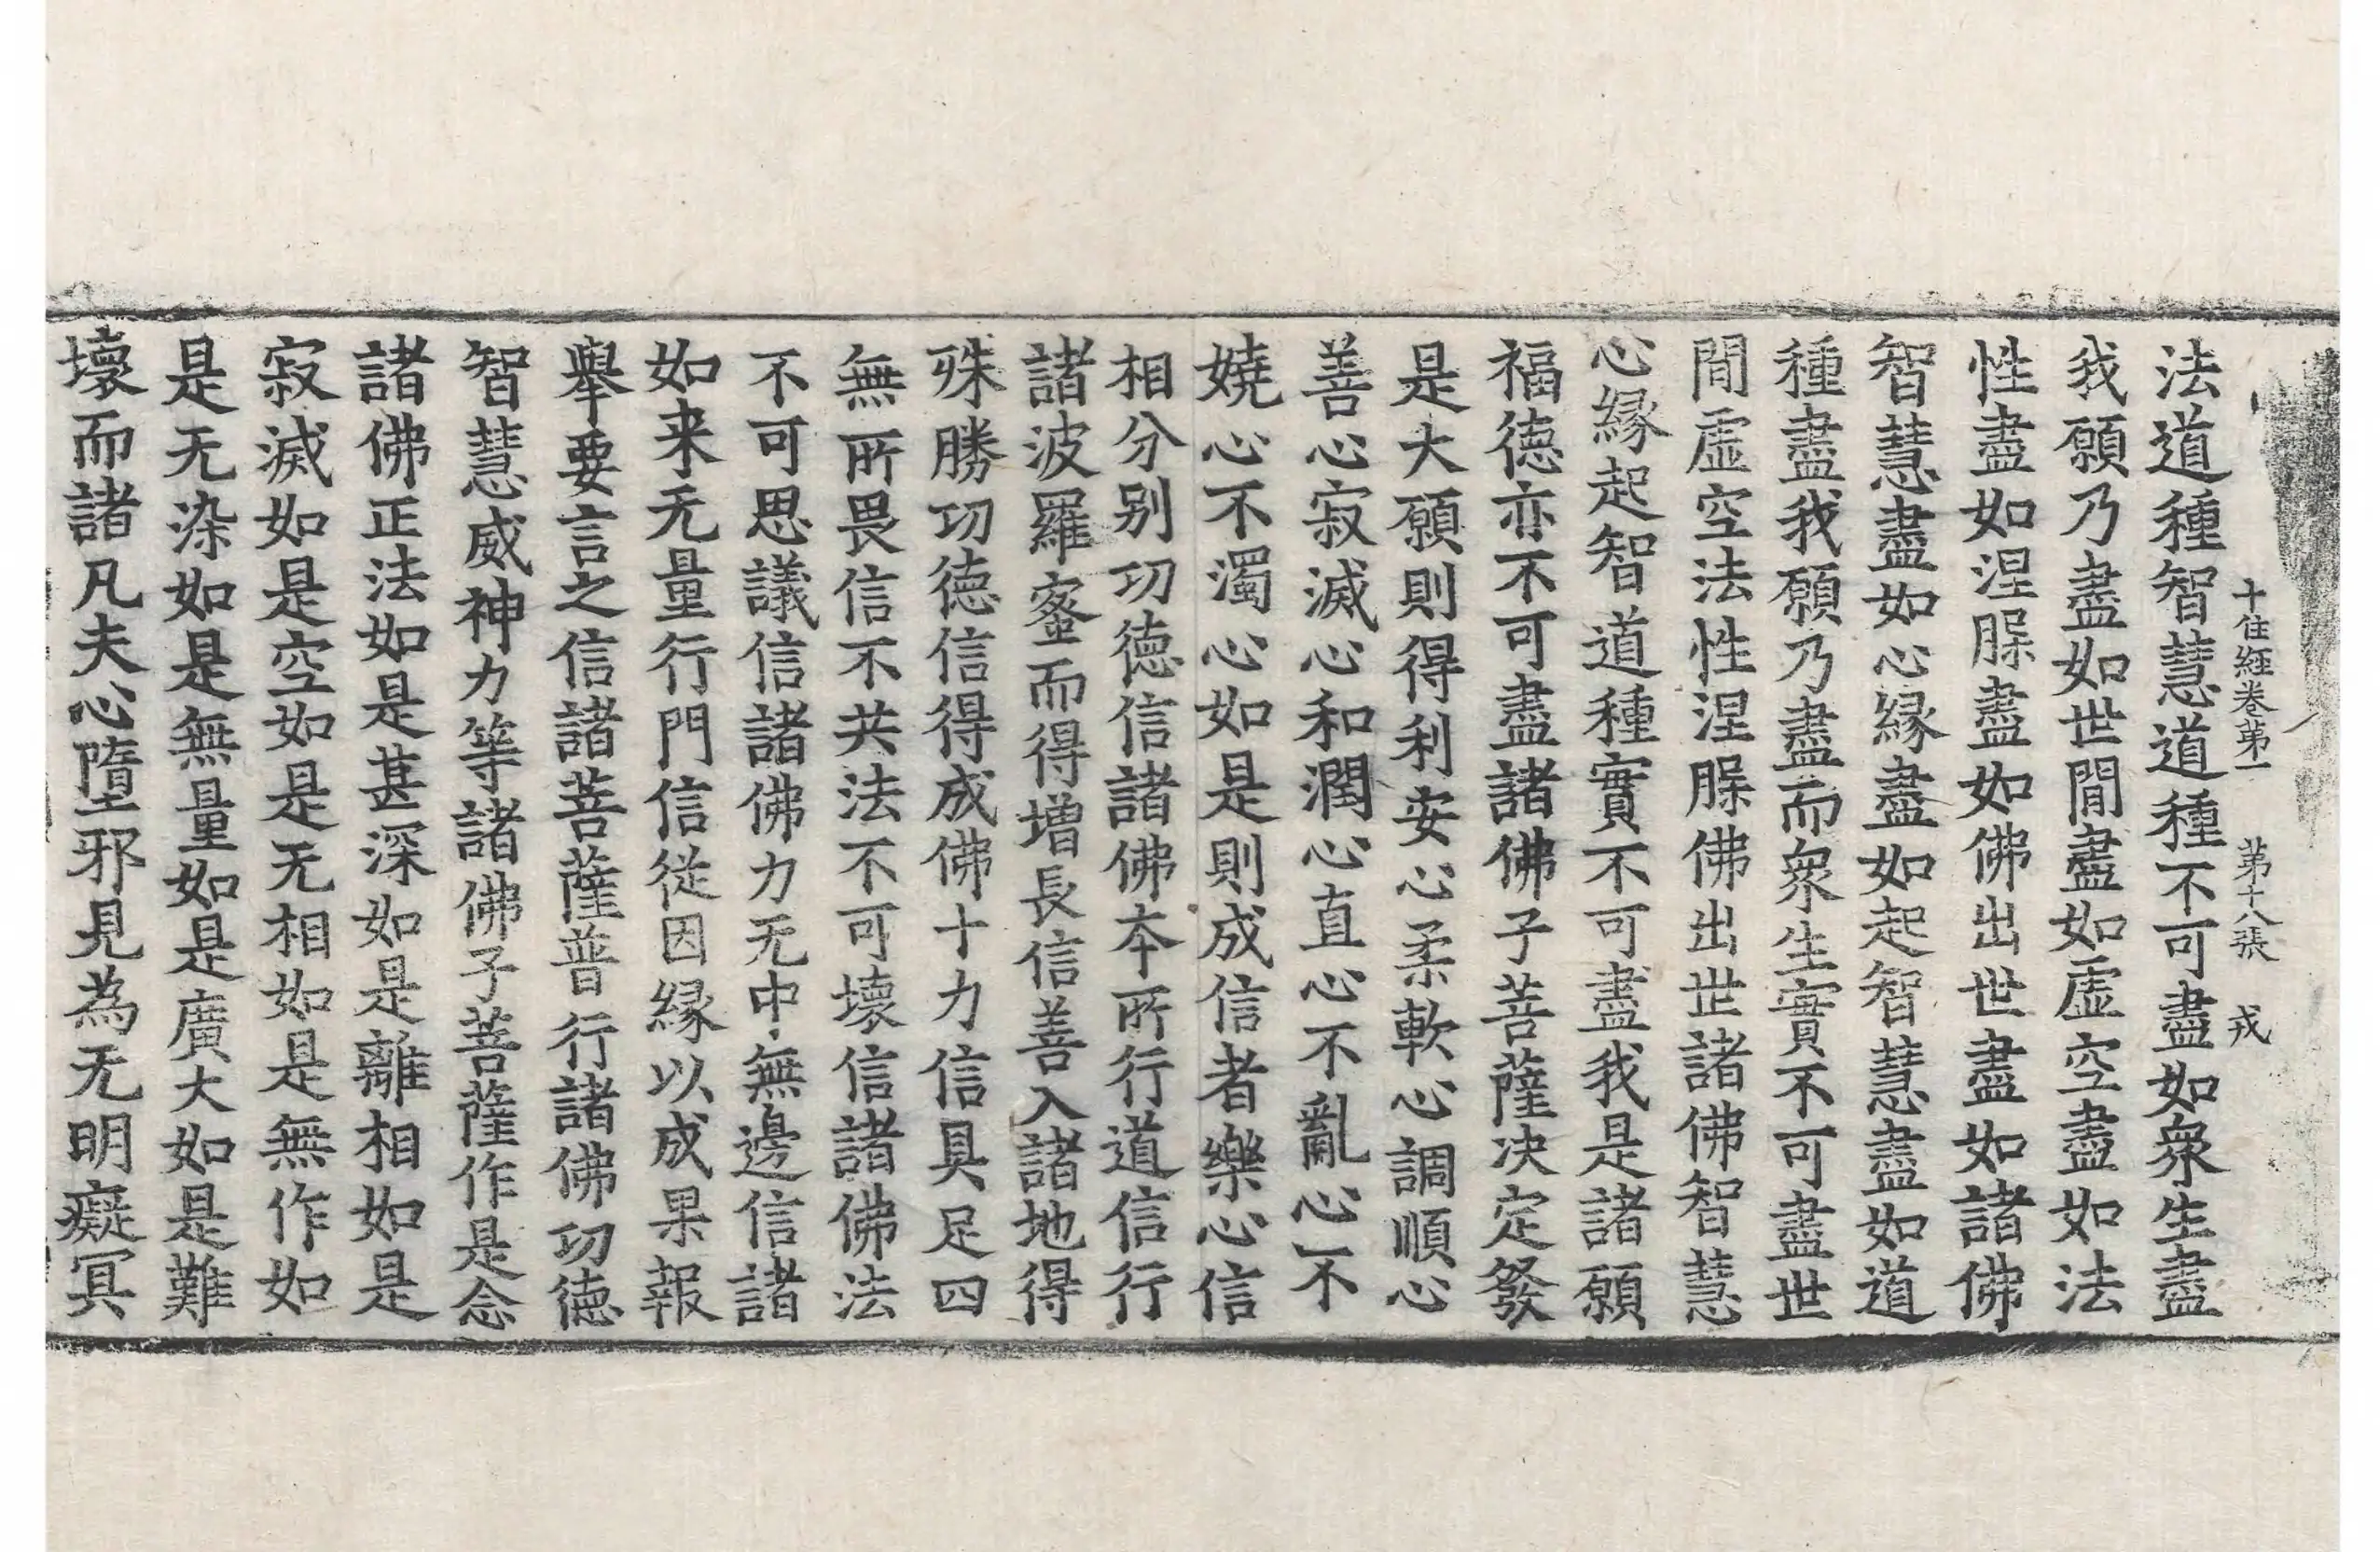 十住經卷第一　第十八張　戎
法道種智慧道種不可盡如衆生盡
我願乃盡如世間盡如虛空盡如法
性盡如涅槃盡如佛出世盡如諸佛
智慧盡如心緣盡如起智慧盡如道
種盡我願乃盡而衆生實不可盡世
間虛空法性涅槃佛出世諸佛智慧
心緣起智道種實不可盡我是諸願
福德亦不可盡諸佛子菩薩决定發
是大願則得利安心柔軟心調順心
善心寂滅心和潤心直心不亂心不
嬈心不濁心如是則成信者樂心信
相分别功德信諸佛本所行道信行
諸波羅蜜而得增長信善入諸地得
殊勝功德信得成佛十力信具足四
無所畏信不共法不可壞信諸佛法
不可思議信諸佛力无中無邊信諸
如来无量行門信從因緣以成果報
舉要言之信諸菩薩普行諸佛功德
智慧威神力等諸佛子菩薩作是念
諸佛正法如是甚深如是離相如是
寂滅如是空如是无相如是無作如
是无染如是無量如是廣大如是難
壞而諸凡夫心墮邪見為无明癡冥